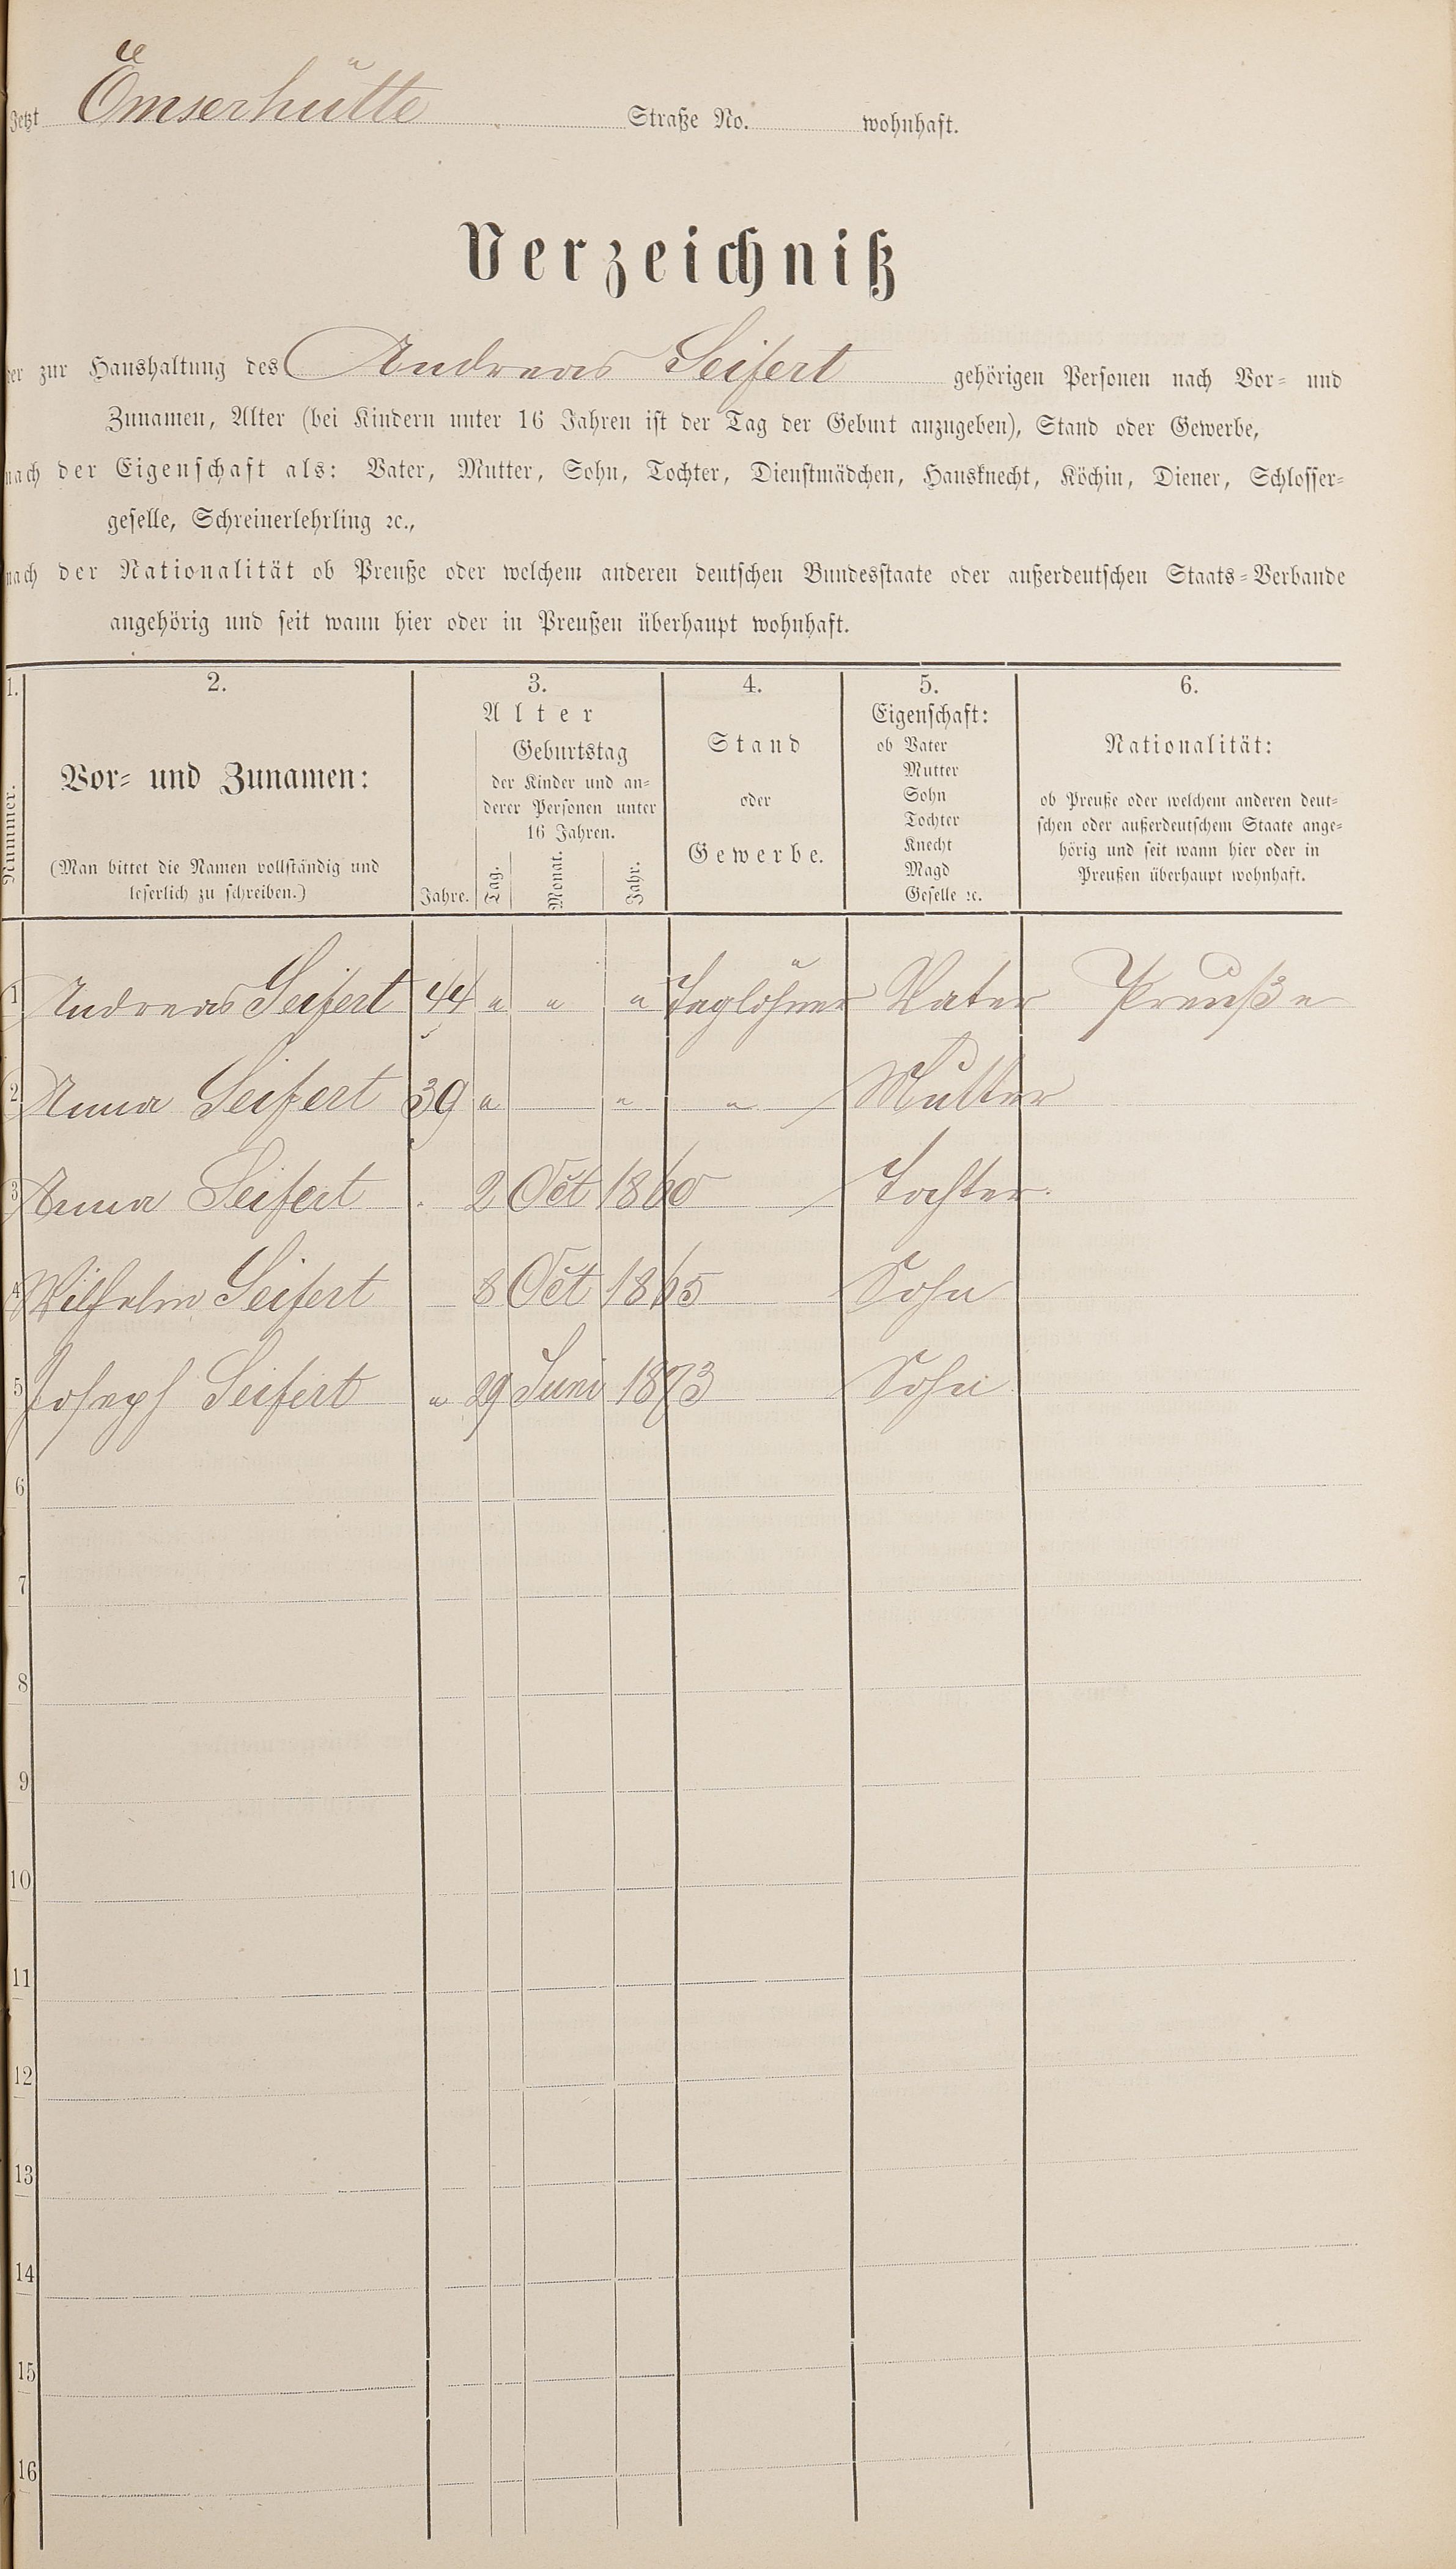 Jetzt Emserhütte Straße No. wohnhaft.
Verzeichniß
der zur Haushaltung des Andreas Seifert gehörigen Personen nach Vor- und
Zunamen, Alter (bei Kindern unter 16 Jahren ist der Tag der Geburt anzugeben), Stand oder Gewerbe,
nach der Eigenschaft als: Vater, Mutter, Sohn, Tochter, Dienstmädchen, Hausknecht, Köchin, Diener, Schlosser-
geselle, Schreinerlehrling ꝛc.,
nach der Nationalität ob Preuße oder welchem anderen deutschen Bundesstaate oder außerdeutschen Staats-Verbande
angehörig und seit wann hier oder in Preußen überhaupt wohnhaft.
1. 2. 3. 4. 5. 6.
Nummer.
Vor- und Zunamen:
(Man bittet die Namen vollständig und
leserlich zu schreiben.)
Alter
Jahre.
Geburtstag
der Kinder und an-
derer Personen unter
16 Jahren.
Tag. Monat. Jahr.
Stand
oder
Gewerbe.
Eigenschaft:
ob Vater
Mutter
Sohn
Tochter
Knecht
Magd
Geselle ꝛc.
Nationalität:
ob Preuße oder welchem anderen deut-
schen oder außerdeutschem Staate ange-
hörig und seit wann hier oder in
Preußen überhaupt wohnhaft.
1 Andreas Seifert 44 " " " Taglöhner Vater Preuße
2 Anna Seifert 39 " " " Mutter
3 Anna Seifert 2 Oct 1860 Tochter
4 Wilhelm Seifert 8 Oct 1865 Sohn
5 Joseph Seifert " 29 Juni 1873 Sohn
6
7
8
9
10
11
12
13
14
15
16